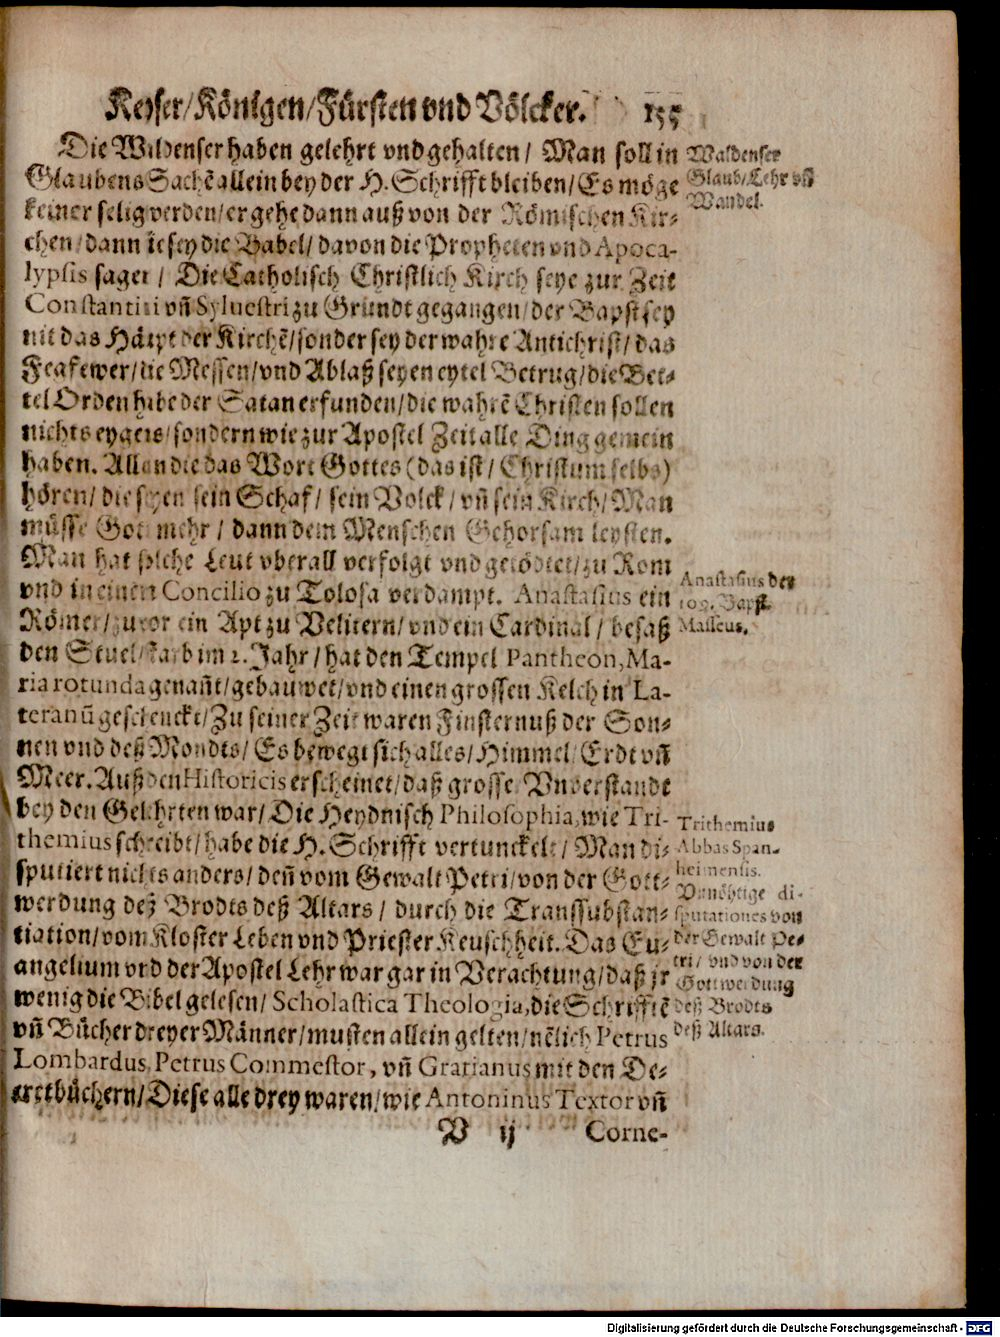 Keyser/Königen/Fürsten vnd Völcker. 155
Die Waldenser haben gelehrt vnd gehalten/ Man soll in
Glaubens Sachē allein bey der H. Schrifft bleiben/ Es möge
keiner selig werden/ er gehe dann auß von der Römischen Kir-
chen/ dann sie sey die Babel/ davon die Propheten vnd Apoca-
lypsis saget/ Die Catholisch Christlich Kirch seye zur Zeit
Constantini vñ Syluestri zu Grundt gegangen/ der Bapst sey
nit das Häupt der Kirchē/ sonder sey der wahre Antichrist/ das
Fegfewer/ die Messen/ vnd Ablaß seyen eytel Betrug/ die Bet-
tel Orden habe der Satan erfunden/ die wahrē Christen sollen
nichts eygens/ sondern wie zur Apostel Zeit alle Ding gemein
haben. Allen die das Wort Gottes (das ist/ Christum selbs)
hören/ die seyen sein Schaf/ sein Volck/ vñ sein Kirch/ Man
müsse Gott mehr/ dann dem Menschen Gehorsam leysten.
Man hat solche Leut vberall verfolgt vnd getödtet/ zu Rom
vnd in einem Concilio zu Tolosa verdampt. Anastasius ein
Römer/ zuvor ein Apt zu Velitern/ vnd ein Cardinal/ besaß
den Stuel/ starb im 2. Jahr/ hat den Tempel Pantheon, Ma-
ria rotunda genañt/ gebauwet/ vnd einen grossen Kelch in La-
teranū geschenckt/ Zu seiner Zeit waren Finsternuß der Son-
nen vnd deß Mondts/ Es bewegt sich alles/ Himmel/ Erdt vñ
Meer. Auß den Historicis erscheinet/ daß grosse Vnverstandt
bey den Gelehrten war/ Die Heydnisch Philosophia, wie Tri-
themius schreibt/ habe die H. Schrifft vertunckelt/ Man di-
sputiert nichts anders/ deñ vom Gewalt Petri/ von der Gott-
werdung deß Brodts deß Altars/ durch die Transsubstan-
tiation/ vom Kloster Leben vnd Priester Keuschheit. Das Eu-
angelium vnd der Apostel Lehr war gar in Verachtung/ daß jr
wenig die Bibel gelesen/ Scholastica Theologia, die Schrifftē
vñ Bücher dreyer Männer/ musten allein gelten/ nēlich Petrus
Lombardus, Petrus Commestor, vñ Gratianus mit den De-
cretbüchern/ Diese alle drey waren/ wie Antoninus Textor vñ
V ij Corne-
Waldenser
Glaub/ Lehr vñ
Wandel.
Anastasius der
109. Bapst.
Masseus.
Trithemius
Abbas Span-
heimensis.
Vnnöhtige di-
sputationes von
der Gewalt Pe-
tri/ vnd von der
Gottwerdung
deß Brodts
deß Altars.
Digitalisierung gefördert durch die Deutsche Forschungsgemeinschaft - DFG